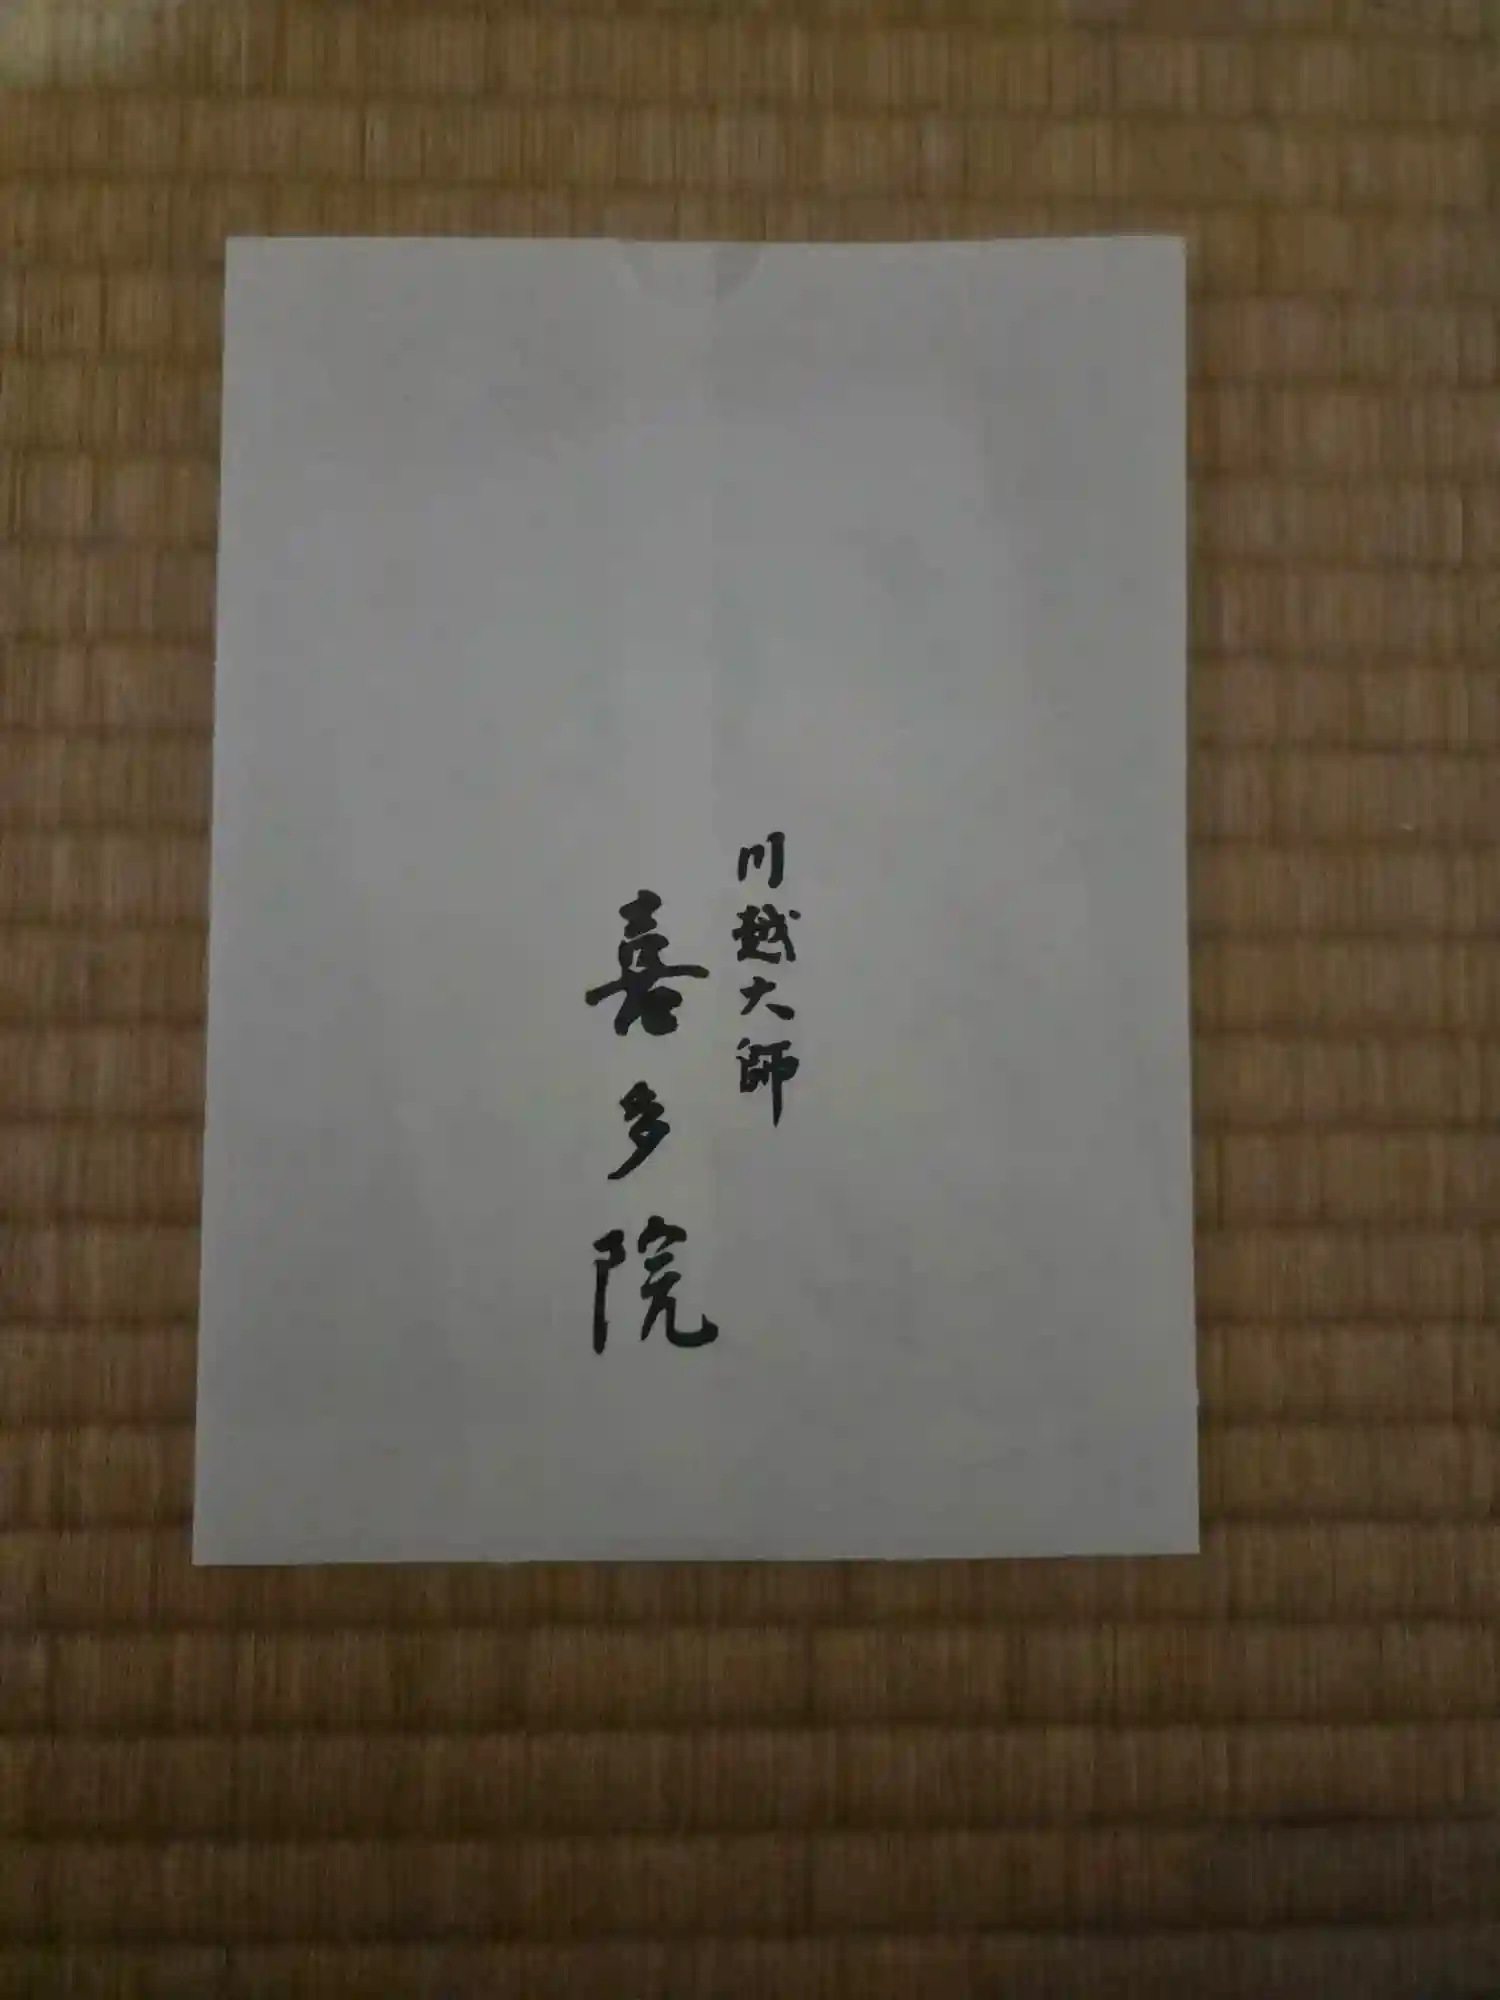 川越大師
喜多院